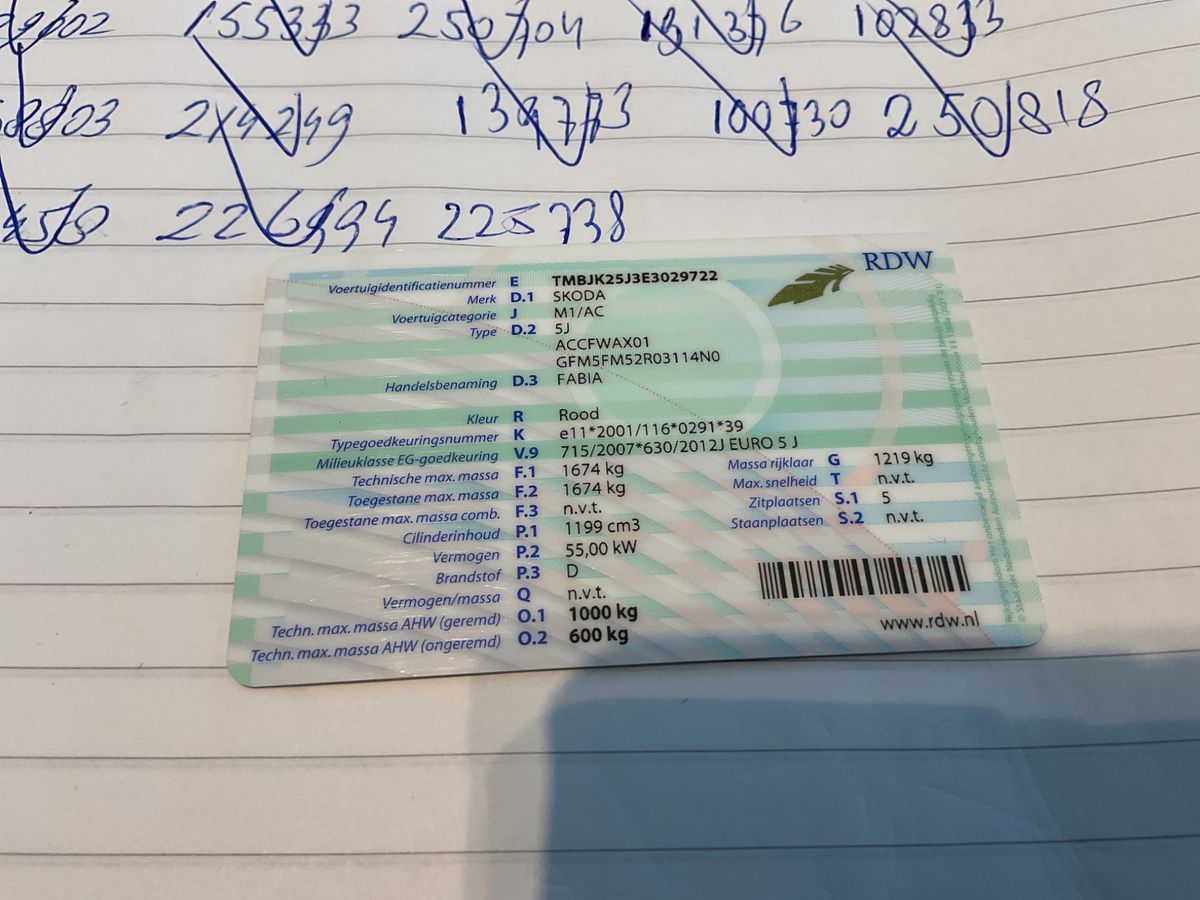 155373 250704 131376 102873
8803 214249 139773 100730 250818
226994 225738
RDW
Voertuigidentificatienummer E TMBJK25J3E3029722
Merk D.1 SKODA
Voertuigcategorie J M1/AC
Type D.2 5J
ACCFWAX01
GFM5FM52R03114N0
Handelsbenaming D.3 FABIA
Kleur R Rood
Typegoedkeuringsnummer K e11*2001/116*0291*39
Milieuklasse EG-goedkeuring V.9 715/2007*630/2012J EURO 5 J
Technische max. massa F.1 1674 kg
Toegestane max. massa F.2 1674 kg
Toegestane max. massa comb. F.3 n.v.t.
Cilinderinhoud P.1 1199 cm3
Vermogen P.2 55,00 kW
Brandstof P.3 D
Vermogen/massa Q n.v.t.
Techn. max. massa AHW (geremd) O.1 1000 kg
Techn. max. massa AHW (ongeremd) O.2 600 kg
Massa rijklaar G 1219 kg
Max. snelheid T n.v.t.
Zitplaatsen S.1 5
Staanplaatsen S.2 n.v.t.
www.rdw.nl